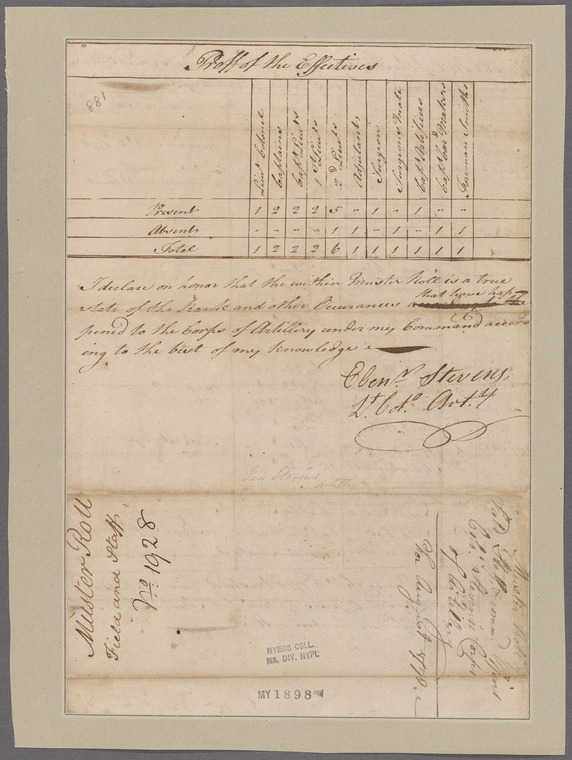 Proff of the Effectives
881
Lieut Colonel
Captains
Capt Lieuts
1st Lieuts
2d Lieuts
Adjutant
Surgeon
Surgeons Mate
Capt Artificers
Foreman Smiths
Present 1 2 2 2 5 " 1 " 1 " "
Absent " " " " 1 1 " 1 " 1 1
Total 1 2 2 2 6 1 1 1 1 1 1
I declare on honor that the within Muster Roll is a true
state of the Ranks and other Occurances that have hap
pened to the Corps of Artillery under my Command accord
ing to the best of my knowledge
Ebenr. Stevens,
Lt. Colo. Arty
Muster Roll
Field and Staff
No. 1928
Muster Roll
Corps
of Artillery
For August 1778
MYERS COLL.
MS. DIV. NYPL
MY 1898